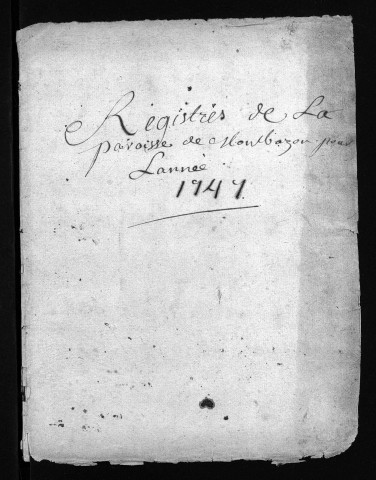 Registres de La
paroisse de Montbazon pour
Lannée
1747